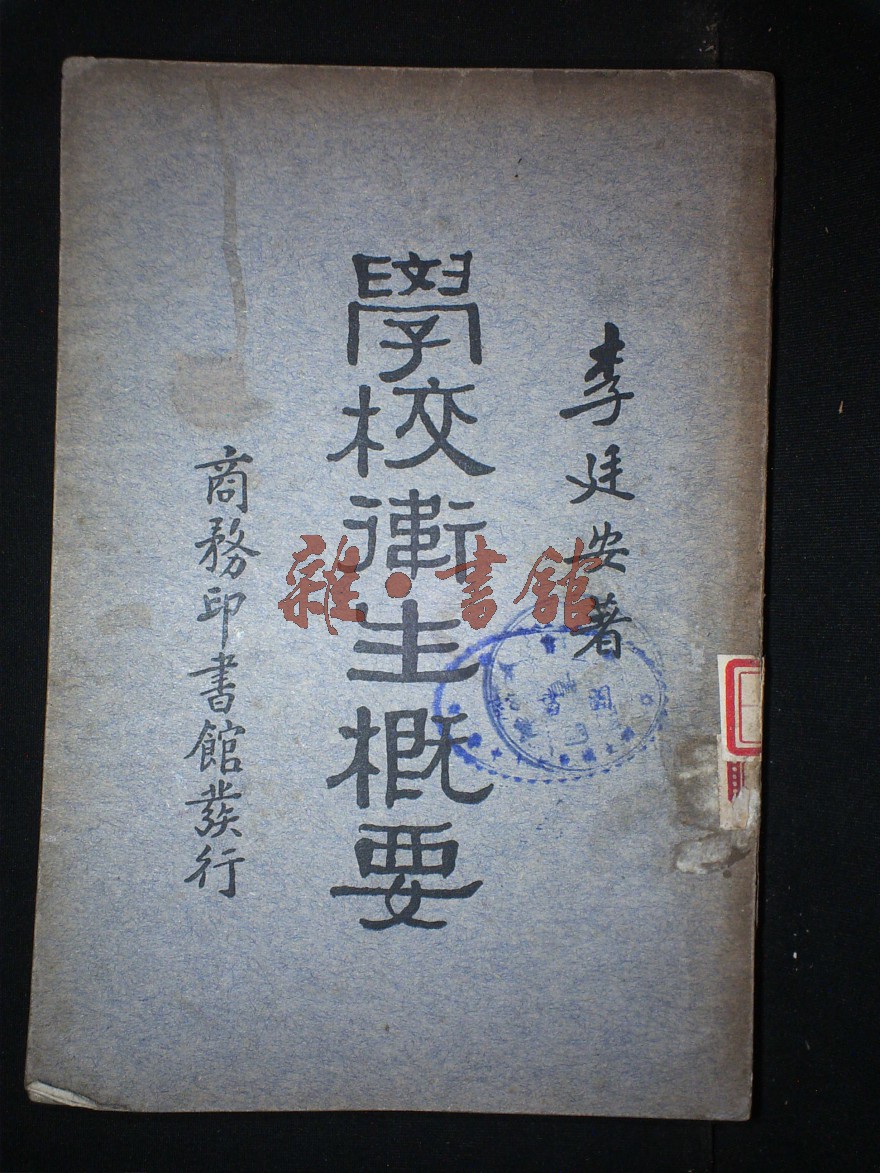 李廷安著
學校衛生概要
商務印書館發行
雜·書館